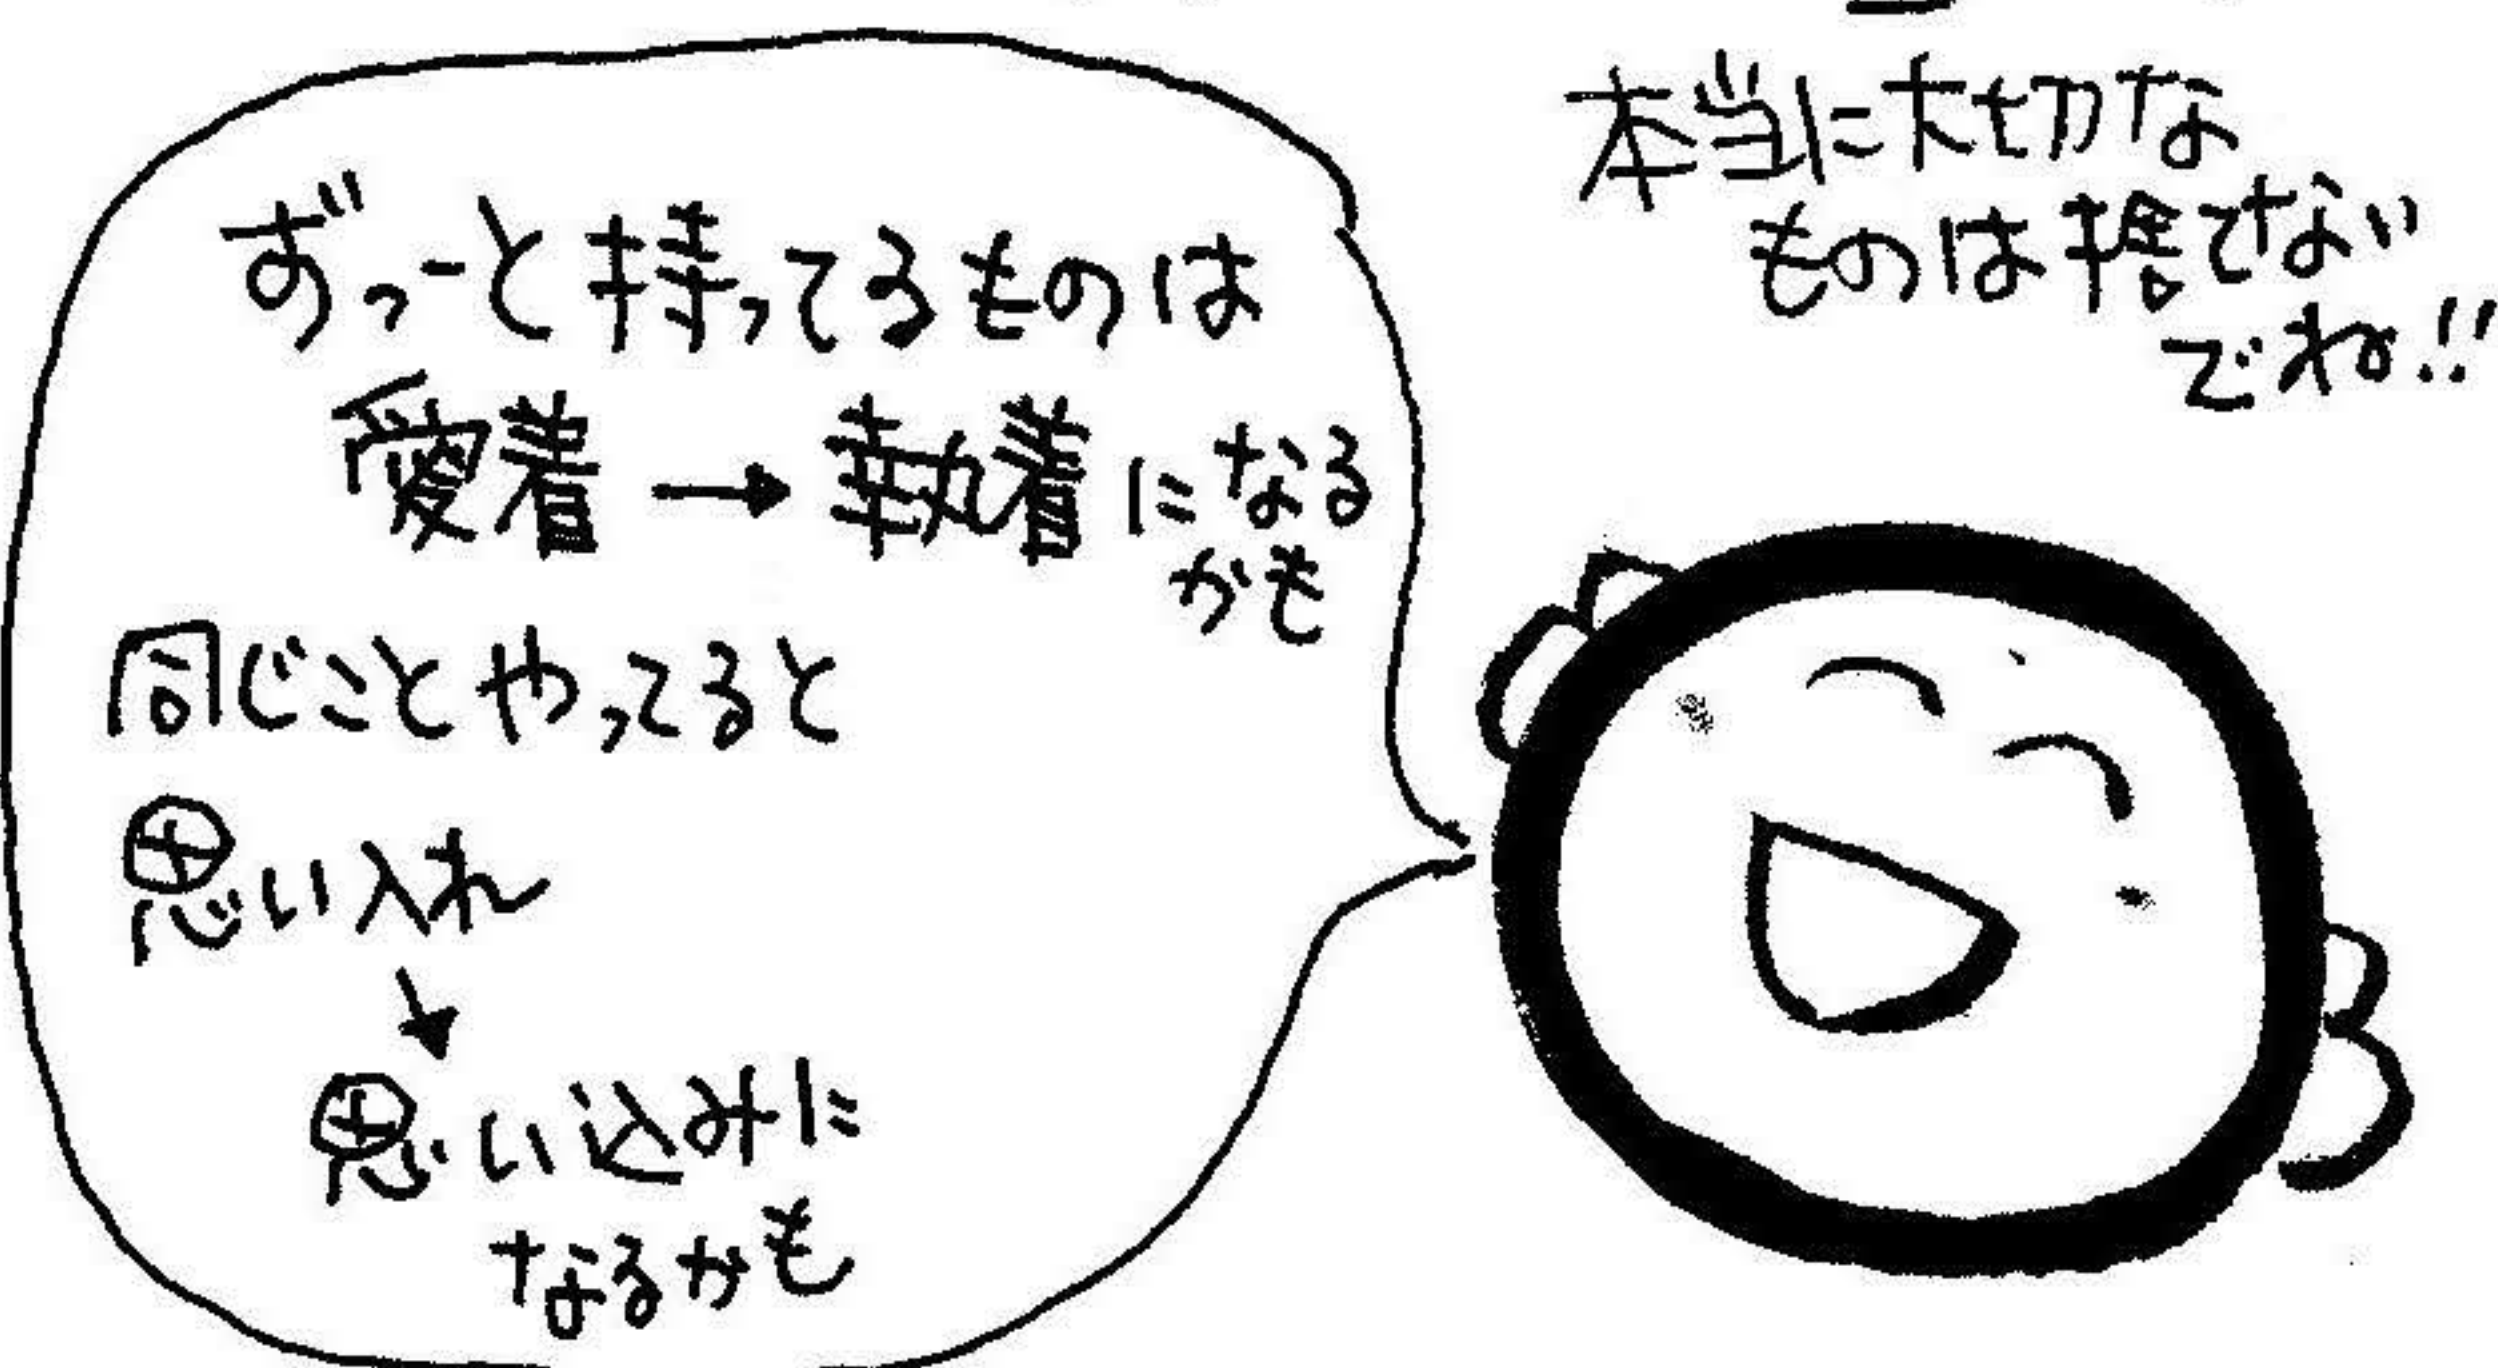 ずっーと持ってるものは
愛着→執着になる
かも
同じことやってると
思い入れ
↓
思い込みに
なるかも
本当に大切な
ものは捨てない
でね!!